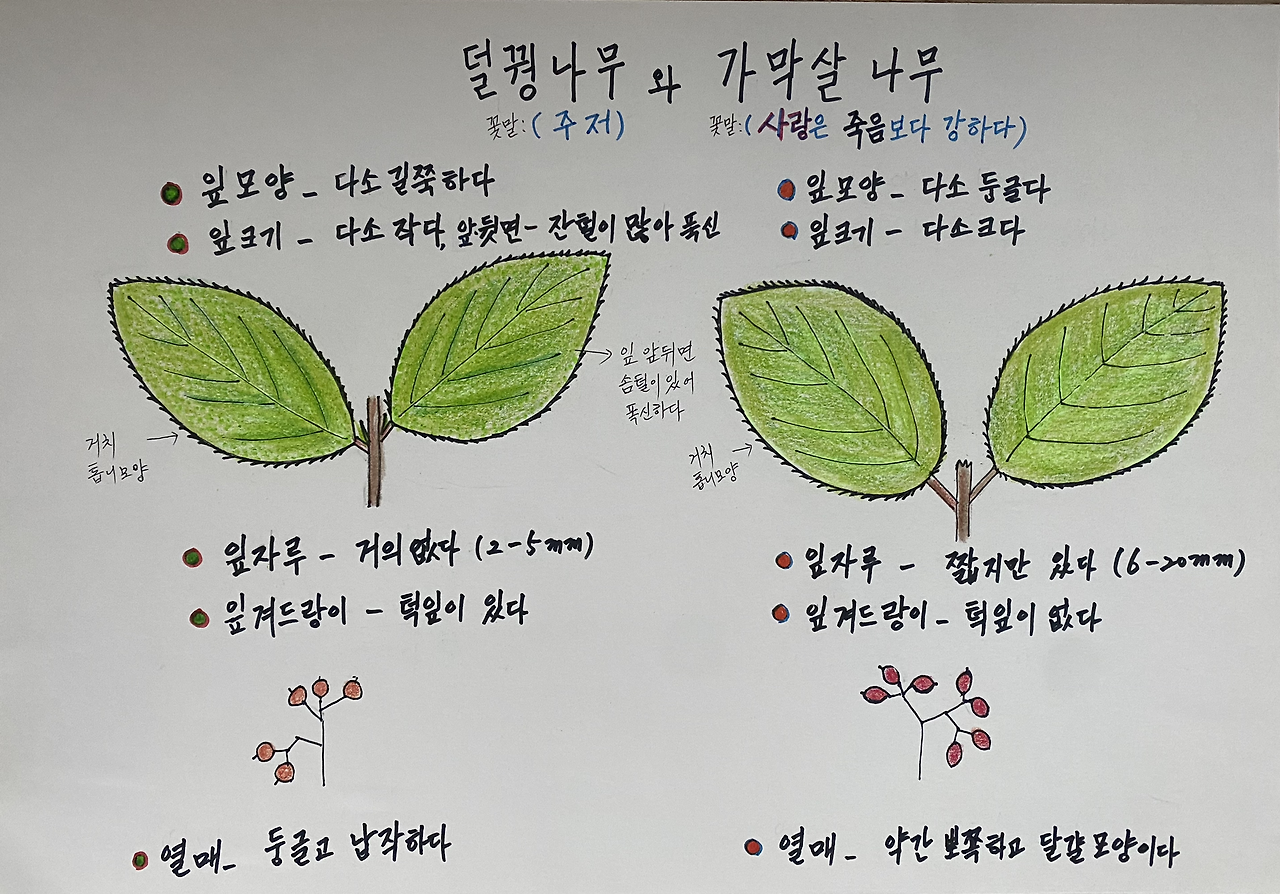 덜꿩나무 와 가막살 나무
꽃말: (주저)
꽃말: (사랑은 죽음보다 강하다)
잎모양 - 다소 길쭉하다
잎크기 - 다소 작다, 앞뒷면 - 잔털이 많아 폭신
잎모양 - 다소 둥글다
잎크기 - 다소크다
잎 앞뒤면
솜털이 있어
폭신하다
거치
톱니모양
거치
톱니모양
잎자루 - 거의 없다 (2-5mm)
잎겨드랑이 - 턱잎이 있다
잎자루 - 짧지만 있다 (6-20mm)
잎겨드랑이 - 턱잎이 없다
열매 - 둥글고 납작하다
열매 - 약간 뾰쪽하고 달걀 모양이다